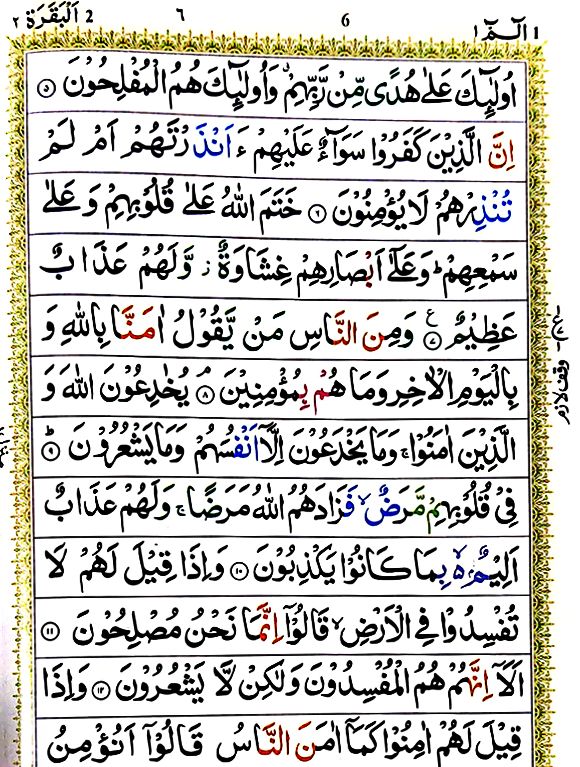 الٓمّٓ ١ 6 ٦ اَلْبَقَرَة ٢ 2
اُولٰٓئِكَ عَلٰى هُدًى مِّنْ رَّبِّهِمْ ۙ وَاُولٰٓئِكَ هُمُ الْمُفْلِحُوْنَ ۵
اِنَّ الَّذِيْنَ كَفَرُوْا سَوَآءٌ عَلَيْهِمْ ءَاَنْذَرْتَهُمْ اَمْ لَمْ
تُنْذِرْهُمْ لَا يُؤْمِنُوْنَ ۶ خَتَمَ اللّٰهُ عَلٰى قُلُوْبِهِمْ وَ عَلٰى
سَمْعِهِمْ ؕ وَعَلٰٓى اَبْصَارِهِمْ غِشَاوَةٌ ز وَّلَهُمْ عَذَابٌ
عَظِيْمٌ ۷ ع وَمِنَ النَّاسِ مَنْ يَّقُوْلُ اٰمَنَّا بِاللّٰهِ وَ
بِالْيَوْمِ الْاٰخِرِ وَمَا هُمْ بِمُؤْمِنِيْنَ ۘ ۸ يُخٰدِعُوْنَ اللّٰهَ وَ
الَّذِيْنَ اٰمَنُوْا ۚ وَمَا يَخْدَعُوْنَ اِلَّاۤ اَنْفُسَهُمْ وَمَا يَشْعُرُوْنَ ؕ ۹
فِيْ قُلُوْبِهِمْ مَّرَضٌ ۙ فَزَادَهُمُ اللّٰهُ مَرَضًا ۚ وَلَهُمْ عَذَابٌ
اَلِيْمٌۢ ۙ۬ بِمَا كَانُوْا يَكْذِبُوْنَ ۱۰ وَاِذَا قِيْلَ لَهُمْ لَا
تُفْسِدُوْا فِي الْاَرْضِ ۙ قَالُوْۤا اِنَّمَا نَحْنُ مُصْلِحُوْنَ ۱۱
اَلَاۤ اِنَّهُمْ هُمُ الْمُفْسِدُوْنَ وَلٰكِنْ لَّا يَشْعُرُوْنَ ۱۲ وَاِذَا
قِيْلَ لَهُمْ اٰمِنُوْا كَمَاۤ اٰمَنَ النَّاسُ قَالُوْۤا اَنُؤْمِنُ
وقف لازم